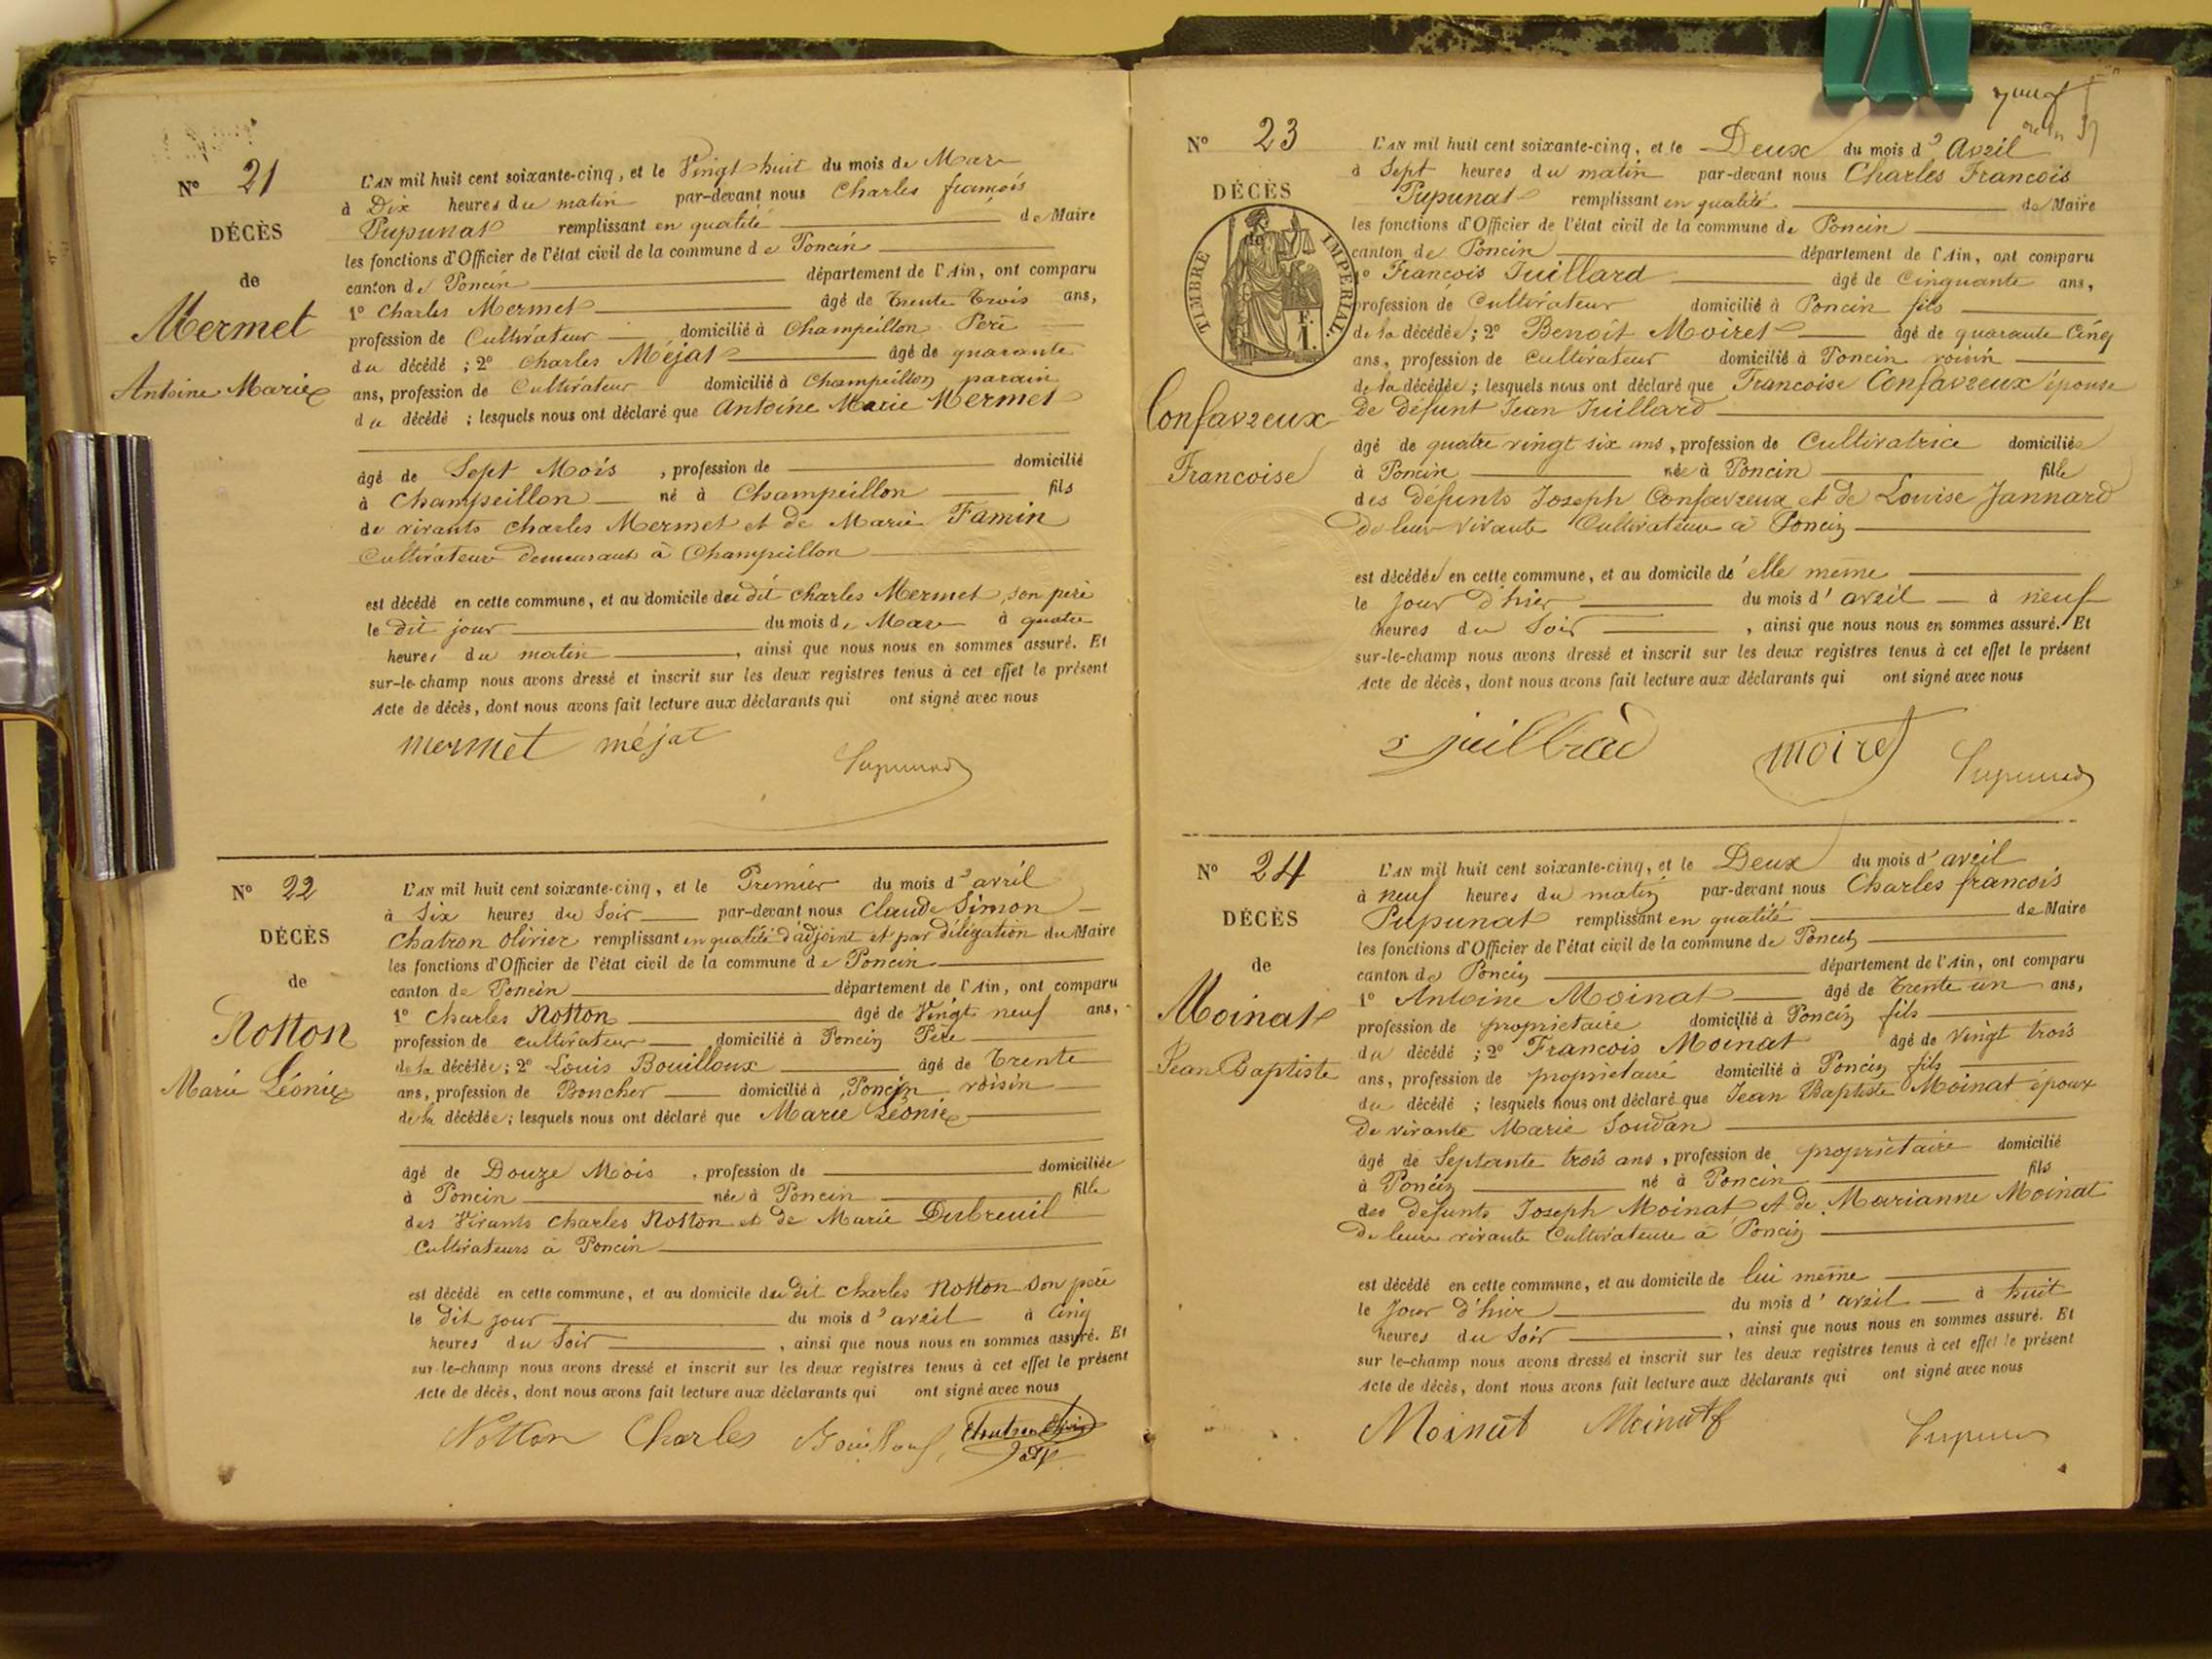 N° 21
DÉCÈS
de
Mermet
Antoine Marie
L'AN mil huit cent soixante-cinq, et le Vingt huit du mois de Mars
à Dix heures du matin par-devant nous Charles françois
Pupunat remplissant en qualité de Maire
les fonctions d'Officier de l'état civil de la commune de Poncin
canton de Poncin département de l'Ain, ont comparu
1° Charles Mermet âgé de trente trois ans,
profession de Cultivateur domicilié à Champeillon Père
du décédé ; 2° Charles Méjat âgé de quarante
ans, profession de Cultivateur domicilié à Champeillon parain
du décédé ; lesquels nous ont déclaré que Antoine Marie Mermet
âgé de Sept Mois , profession de domicilié
à Champeillon né à Champeillon fils
de vivants Charles Mermet et de Marie Famin
Cultivateur demeurant à Champeillon
est décédé en cette commune, et au domicile du dit Charles Mermet, son père
le dit jour du mois de Mars à quatre
heures du matin , ainsi que nous nous en sommes assuré. Et
sur-le-champ nous avons dressé et inscrit sur les deux registres tenus à cet effet le présent
Acte de décès, dont nous avons fait lecture aux déclarants qui ont signé avec nous
mermet méjat Pupunat
N° 22
DÉCÈS
de
Notton
Marie Léonie
L'AN mil huit cent soixante-cinq, et le Premier du mois d'avril
à Six heures du Soir par-devant nous Claude Simon
Chatron Olivier remplissant en qualité d'adjoint et par délégation du Maire
les fonctions d'Officier de l'état civil de la commune de Poncin
canton de Poncin département de l'Ain, ont comparu
1° Charles Notton âgé de Vingt neuf ans,
profession de cultivateur domicilié à Poncin Père
de la décédée; 2° Louis Bouilloux âgé de trente
ans, profession de Boucher domicilié à Poncin voisin
de la décédée; lesquels nous ont déclaré que Marie Léonie
âgé de Douze Mois , profession de domiciliée
à Poncin née à Poncin fille
des Vivants Charles Notton et de Marie Dubreuil
Cultivateurs à Poncin
est décédé en cette commune, et au domicile du dit Charles Notton son père
le dit jour du mois d'avril à Cinq
heures du Soir , ainsi que nous nous en sommes assuré. Et
sur-le-champ nous avons dressé et inscrit sur les deux registres tenus à cet effet le présent
Acte de décès, dont nous avons fait lecture aux déclarants qui ont signé avec nous
Notton Charles Bouilloux Chatron Olivier
adj
N° 23
DÉCÈS
TIMBRE IMPÉRIAL.
F.
1.
Confavreux
Francoise
L'AN mil huit cent soixante-cinq, et le Deux du mois d'Avril
à Sept heures du matin par-devant nous Charles Francois
Pupunat remplissant en qualité de Maire
les fonctions d'Officier de l'état civil de la commune de Poncin
canton de Poncin département de l'Ain, ont comparu
1° Francois Juillard âgé de Cinquante ans,
profession de Cultivateur domicilié à Poncin fils
de la décédée; 2° Benoit Moiret âgé de quarante Cinq
ans, profession de Cultivateur domicilié à Poncin voisin
de la décédée ; lesquels nous ont déclaré que Francoise Confavreux épouse
de défunt Jean Juillard
âgé de quatre vingt six ans, profession de Cultivatrice domiciliée
à Poncin née à Poncin fille
des défunts Joseph Confavreux et de Louise Jannard
de leur vivante Cultivateur à Poncin
est décédée en cette commune, et au domicile d'elle même
le Jour d'hier du mois d'avril à neuf
heures du Soir , ainsi que nous nous en sommes assuré. Et
sur-le-champ nous avons dressé et inscrit sur les deux registres tenus à cet effet le présent
Acte de décès, dont nous avons fait lecture aux déclarants qui ont signé avec nous
juillard moiret Pupunat
N° 24
DÉCÈS
de
Moinat
Jean Baptiste
L'AN mil huit cent soixante-cinq, et le Deux du mois d'avril
à neuf heures du matin par-devant nous Charles francois
Pupunat remplissant en qualité de Maire
les fonctions d'Officier de l'état civil de la commune de Poncin
canton de Poncin département de l'Ain, ont comparu
1° Antoine Moinat âgé de trente un ans,
profession de proprietaire domicilié à Poncin fils
du décédé ; 2° Francois Moinat âgé de vingt trois
ans, profession de proprietaire domicilié à Poncin fils
du décédé ; lesquels nous ont déclaré que Jean Baptiste Moinat époux
de vivante Marie Soudan
âgé de Septante trois ans, profession de proprietaire domicilié
à Poncin né à Poncin fils
des defunts Joseph Moinat et de Marianne Moinat
de leur vivante Cultivateurs à Poncin
est décédé en cette commune, et au domicile de lui meme
le Jour d'hier du mois d'avril à huit
heures du Soir , ainsi que nous nous en sommes assuré. Et
sur le-champ nous avons dressé et inscrit sur les deux registres tenus à cet effet le présent
Acte de décès, dont nous avons fait lecture aux déclarants qui ont signé avec nous
Moinat Moinat f Pupunat